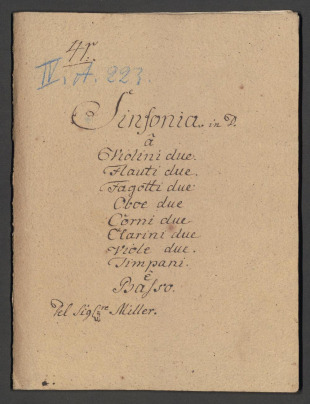 41.
IV. A. 223.
Sinfonia. in D.
â
Violini due.
Flauti due.
Fagotti due
Oboe due
Corni due
Clarini due
Viole due.
Timpani.
ê
Baſso.
Del Sigre Miller.